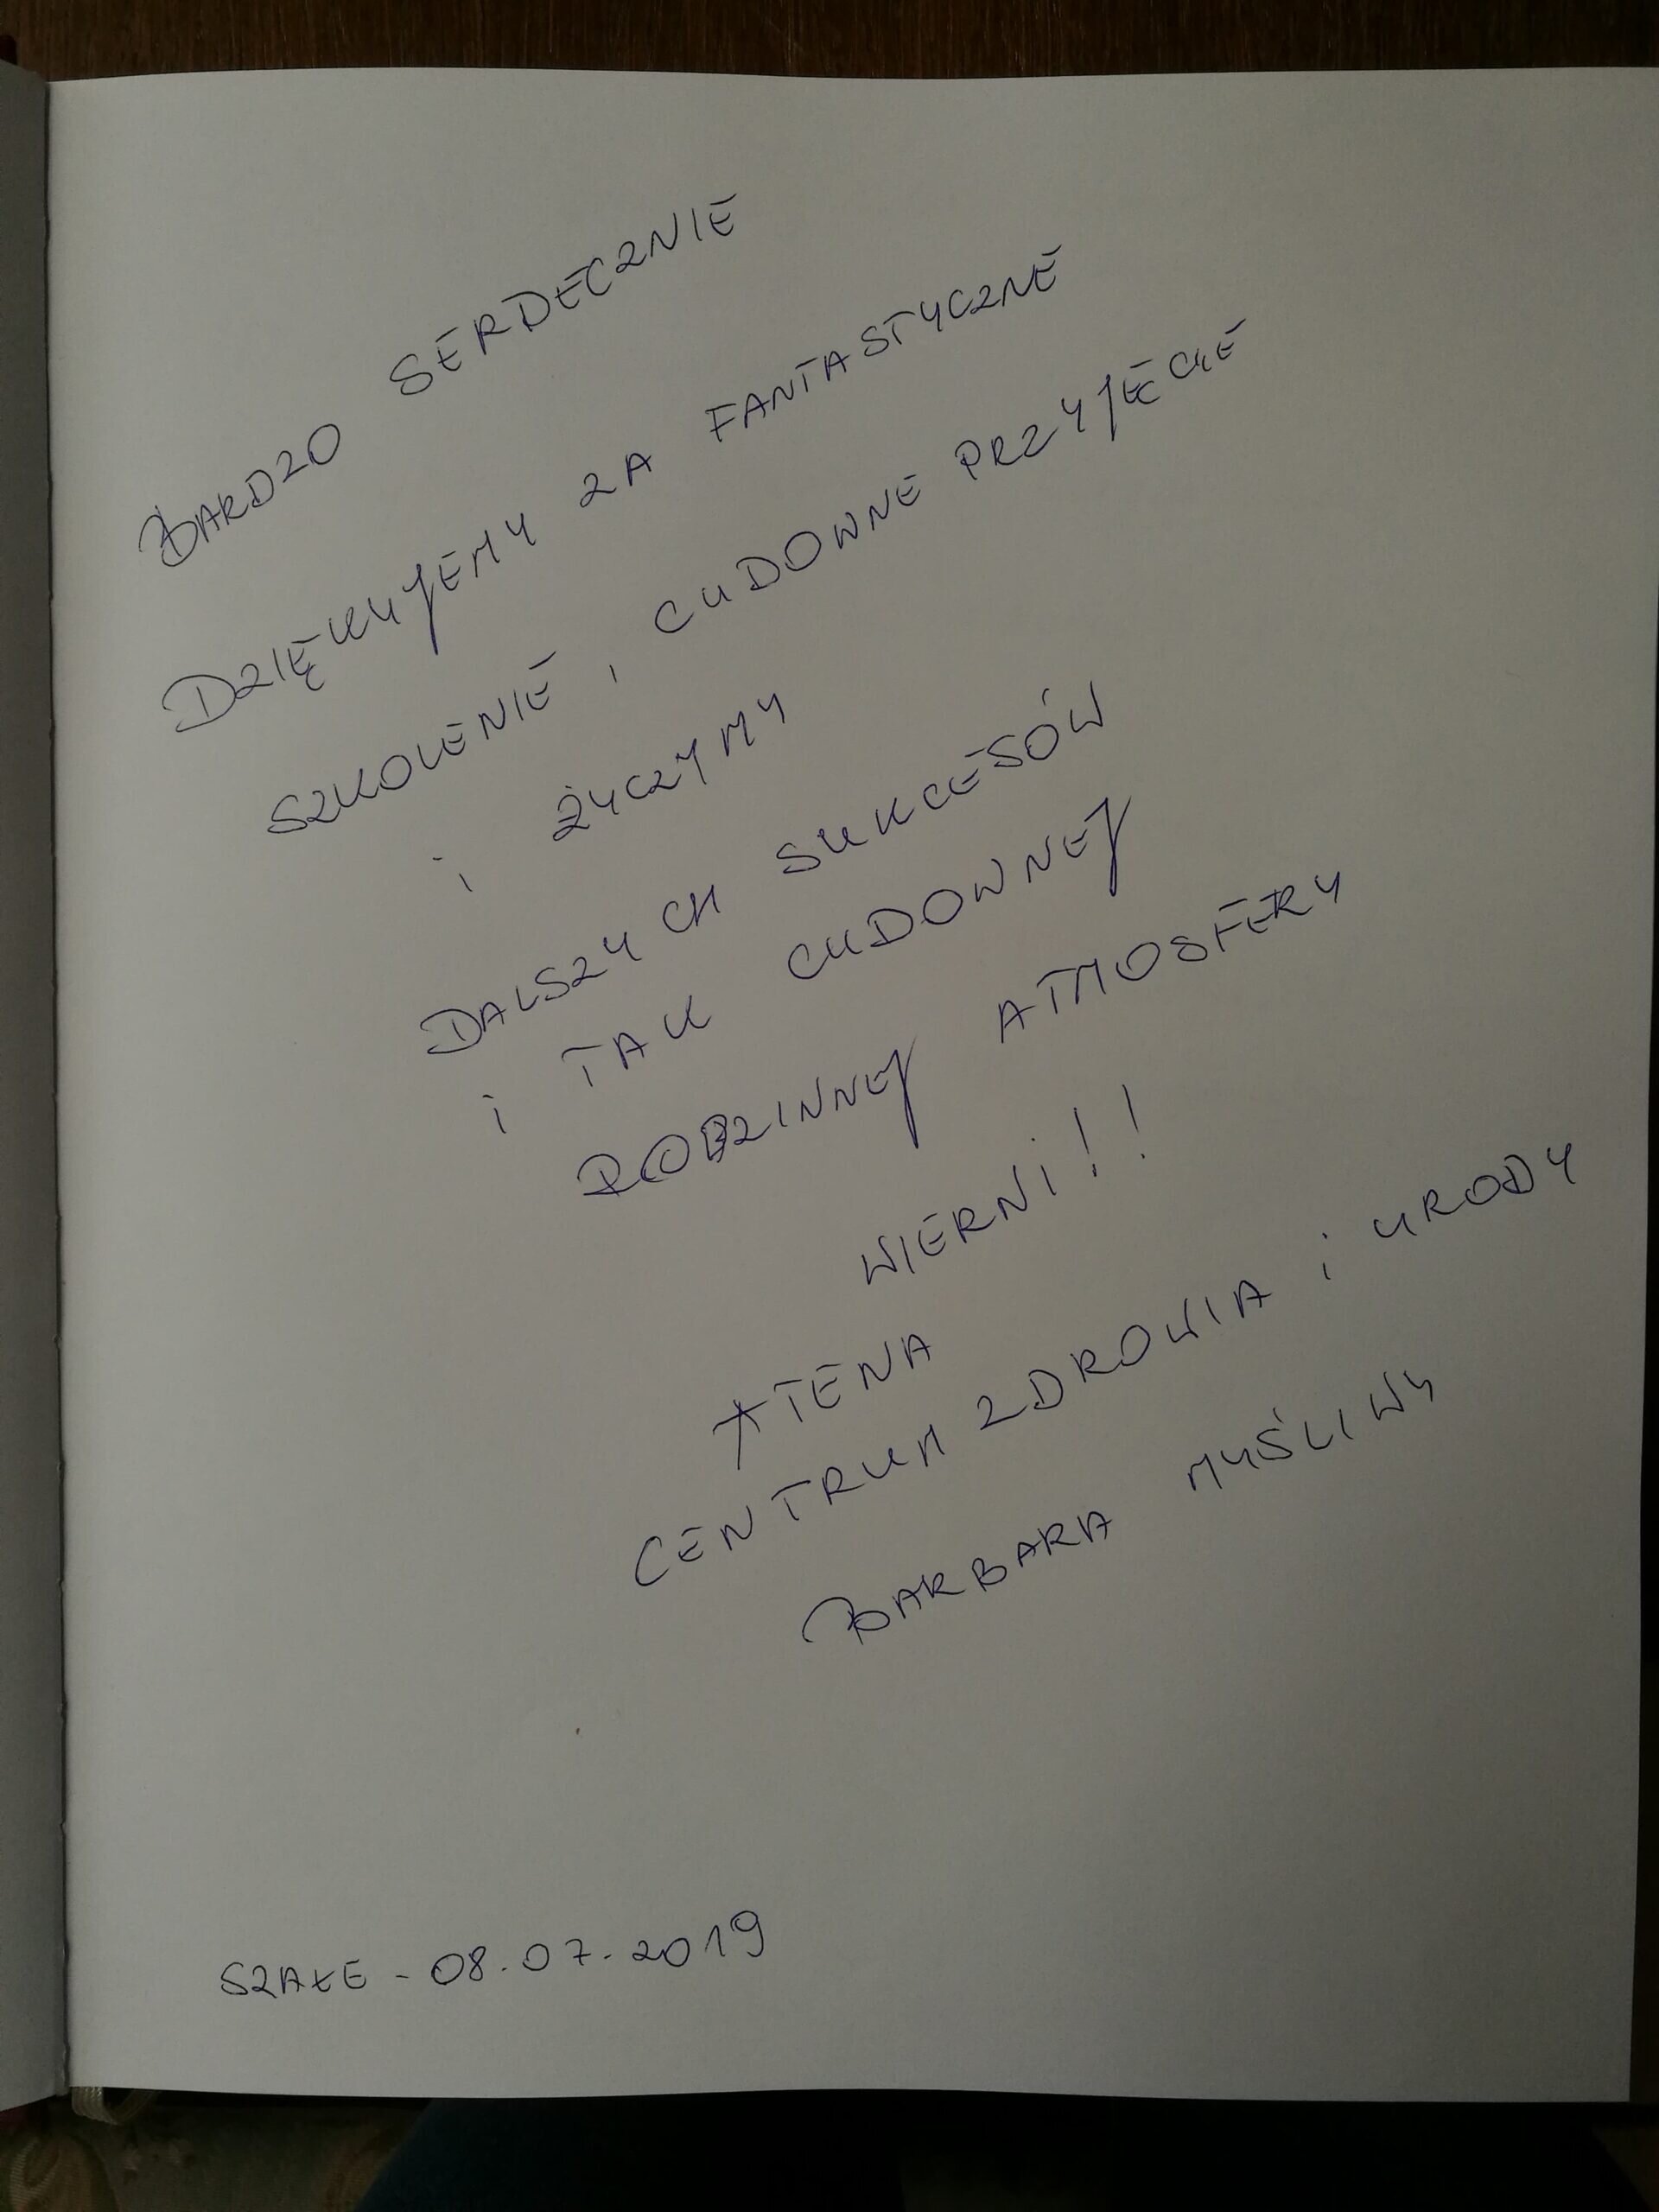 BARDZO SERDECZNIE
DZIĘKUJEMY ZA FANTASTYCZNE
SZKOLENIE, CUDOWNE PRZYJĘCIE
i ŻYCZYMY
DALSZYCH SUKCESÓW
i TAK CUDOWNEJ
RODZINNEJ ATMOSFERY
WIERNi!!
ATENA
CENTRUM ZDROWIA i URODY
BARBARA MYŚLIWY
SZAŁE - 08.07.2019